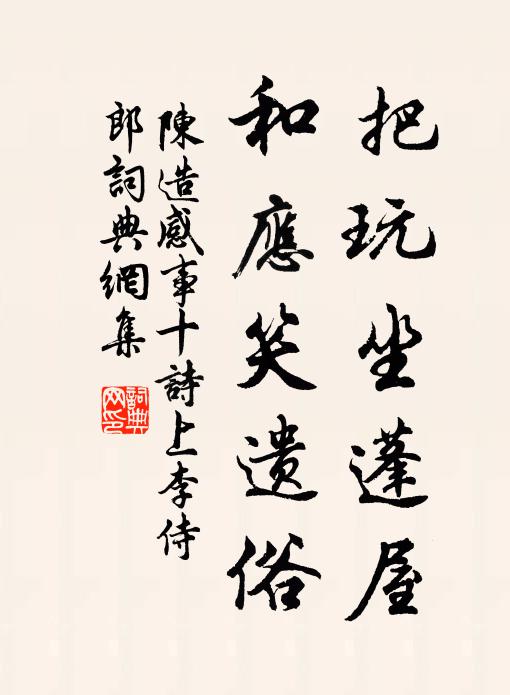 把玩坐蓬屋
和應笑遺俗
陳造感事十詩上李侍
郎詞典網集
詞典网印